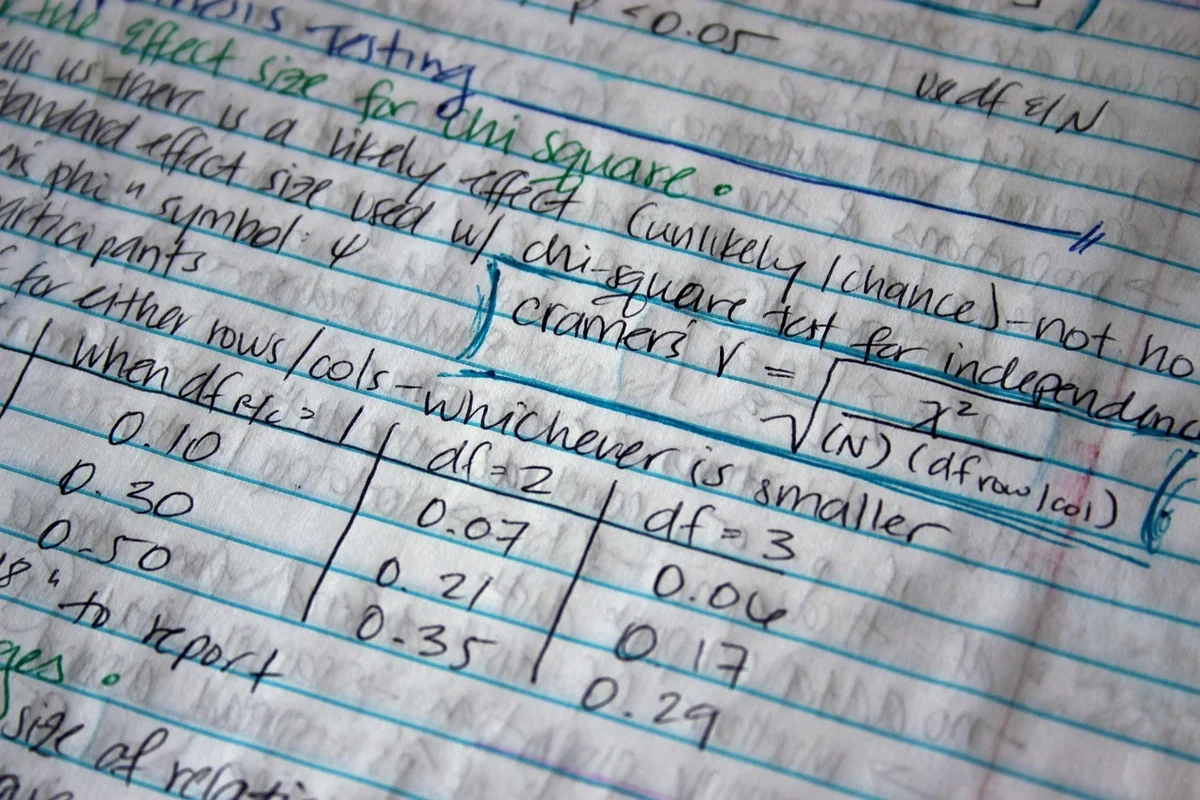 p < 0.05
Testing
use df &/N
the effect size for chi square.
us there is a likely effect (unlikely / chance) - not no
standard effect size used w/ chi-square test for independenc
phi" symbol: φ
cramers V = √ χ² / (N) (df row/col)
participants
for either rows/cols - whichever is smaller
when df R/C = 1 df = 2 df = 3
0.10 0.07 0.06
0.30 0.21 0.17
0.50 0.35 0.29
" to report
size of